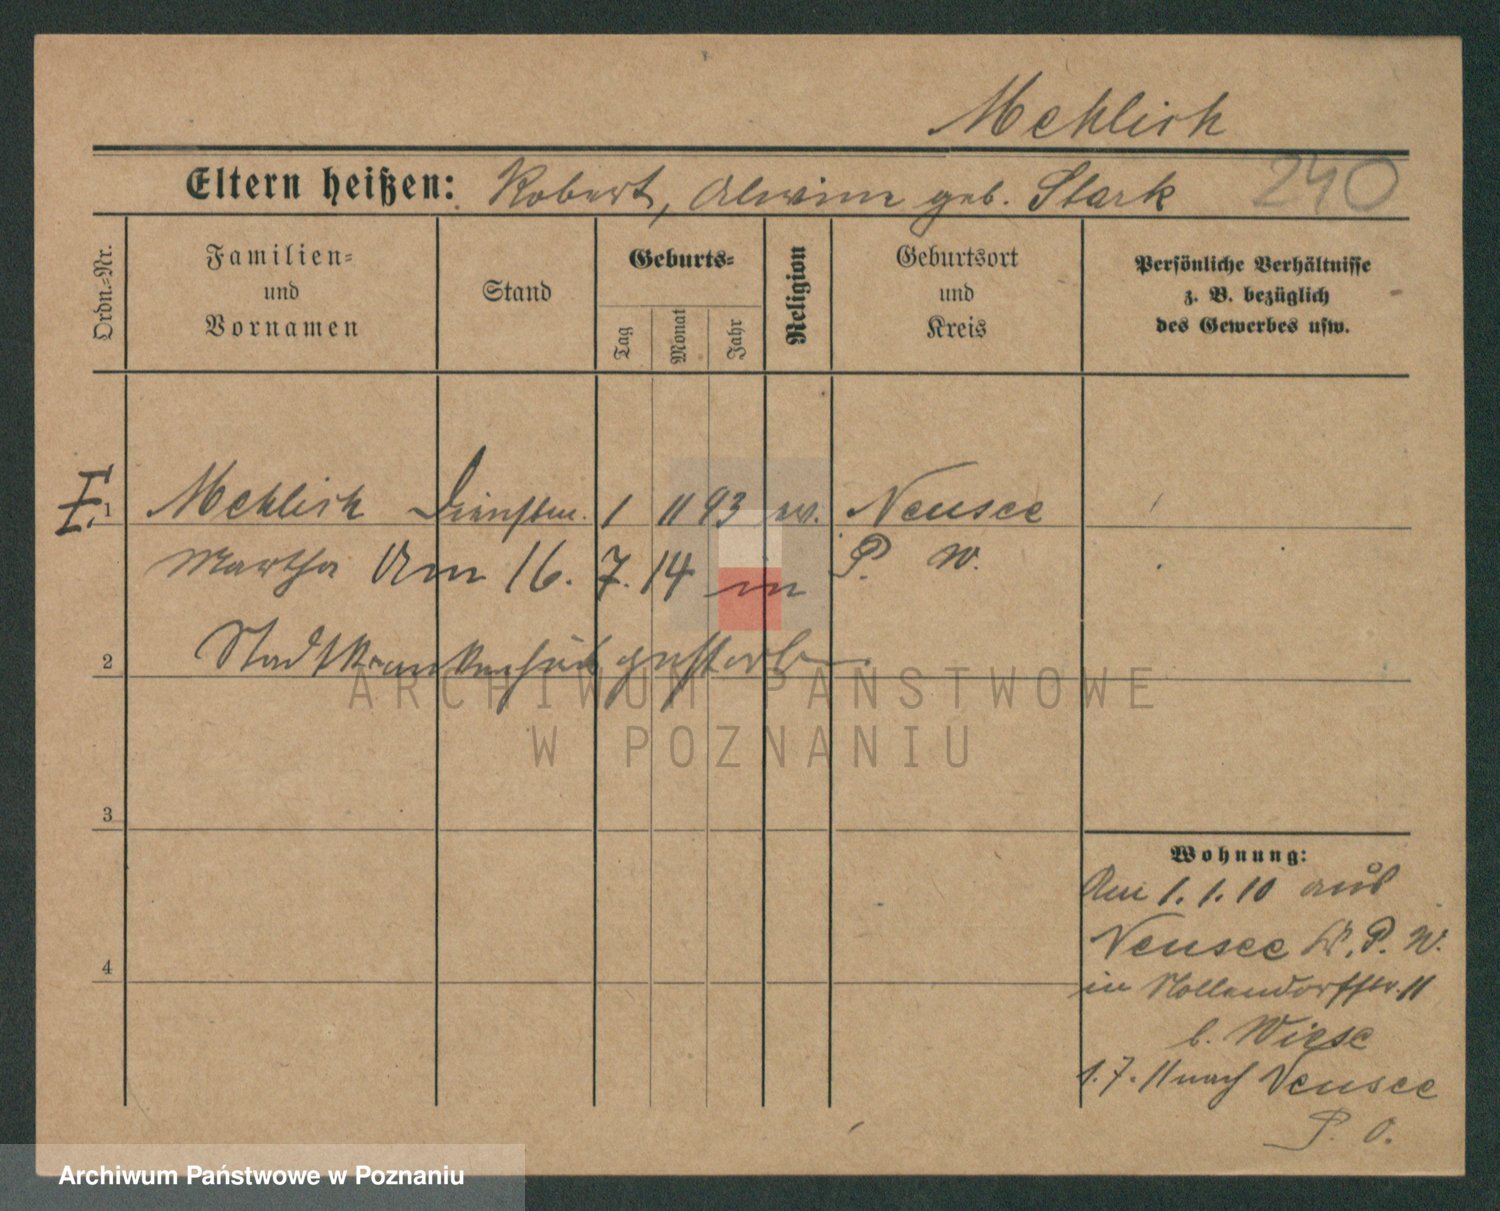 Mehlich
Eltern heißen: Robert, Alwine geb. Stark 240
Ordn.-Nr.
Familien-
und
Vornamen
Stand
Geburts-
Tag
Monat
Jahr
Religion
Geburtsort
und
Kreis
Persönliche Verhältnisse
z. B. bezüglich
des Gewerbes usw.
E. 1 Mehlich Dienstm. 1 11 93 ev. Neusee
Martha Am 16. 7. 14 in P. W.
2 Stadtkrankenhaus gestorben
3
4
Wohnung:
Am 1. 1. 10 aus
Neusee P. W.
in Nollendorfstr. 11
b. Wiese
1. 7. 11 nach Neusee
P. O.
ARCHIWUM PAŃSTWOWE
W POZNANIU
Archiwum Państwowe w Poznaniu